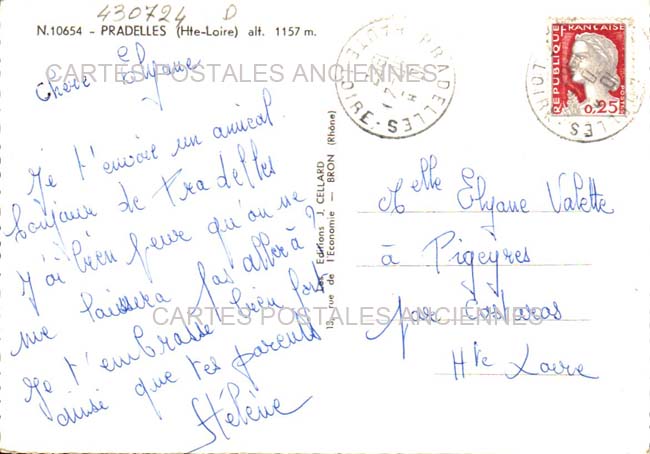 430724 D
N.10654 - PRADELLES (Hte-Loire) alt. 1157 m.
Chère Elyane
Je t'envoie un amical
bonjour de Pradelles
J'ai bien peur qu'on ne
me laissera pas aller à
Je t'embrasse bien fort
ainsi que tes parents
Hélène
13, rue de l'Economie - BRON (Rhône)
Les Editions J. CELLARD
PRADELLES
HAUTE LOIRE
REPUBLIQUE FRANÇAISE
POSTES
0,25
Melle Elyane Valette
à Pigeyres
par Costaros
Hte Loire
CARTES POSTALES ANCIENNES
CARTES POSTALES ANCIENNES